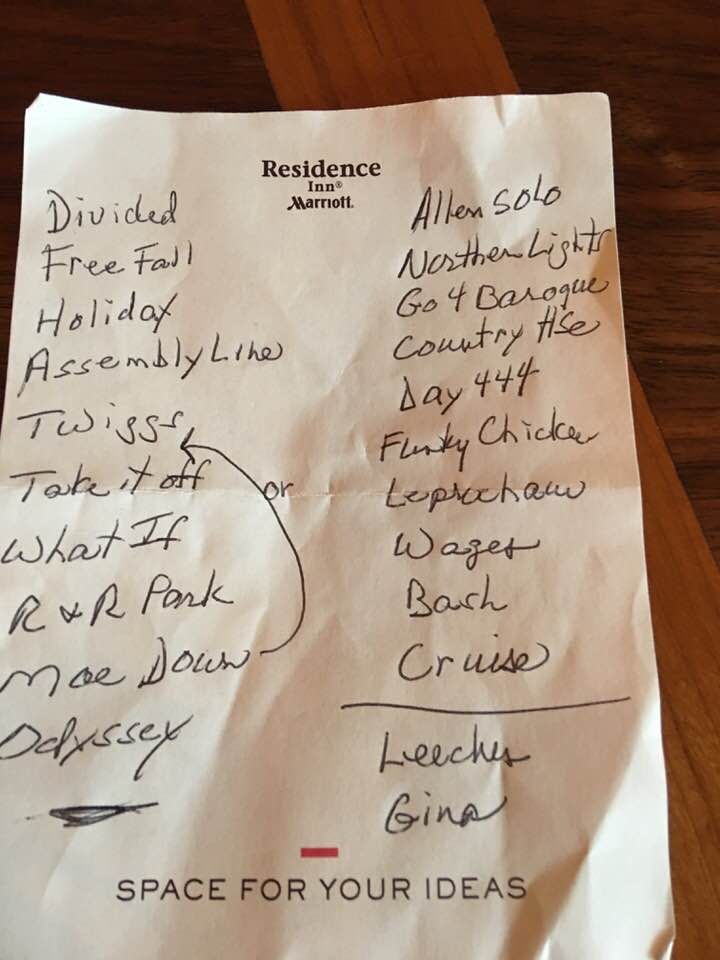 Residence
Inn®
Marriott.
Divided
Free Fall
Holiday
Assembly Line
Twiggs
Take it off
or
What If
R & R Park
Moe Down
Odyssey
Allen Solo
Northern Lights
Go 4 Baroque
Country Hse
Day 444
Funky Chicken
Leprechaun
Wages
Bash
Cruise
Leeches
Gina
SPACE FOR YOUR IDEAS